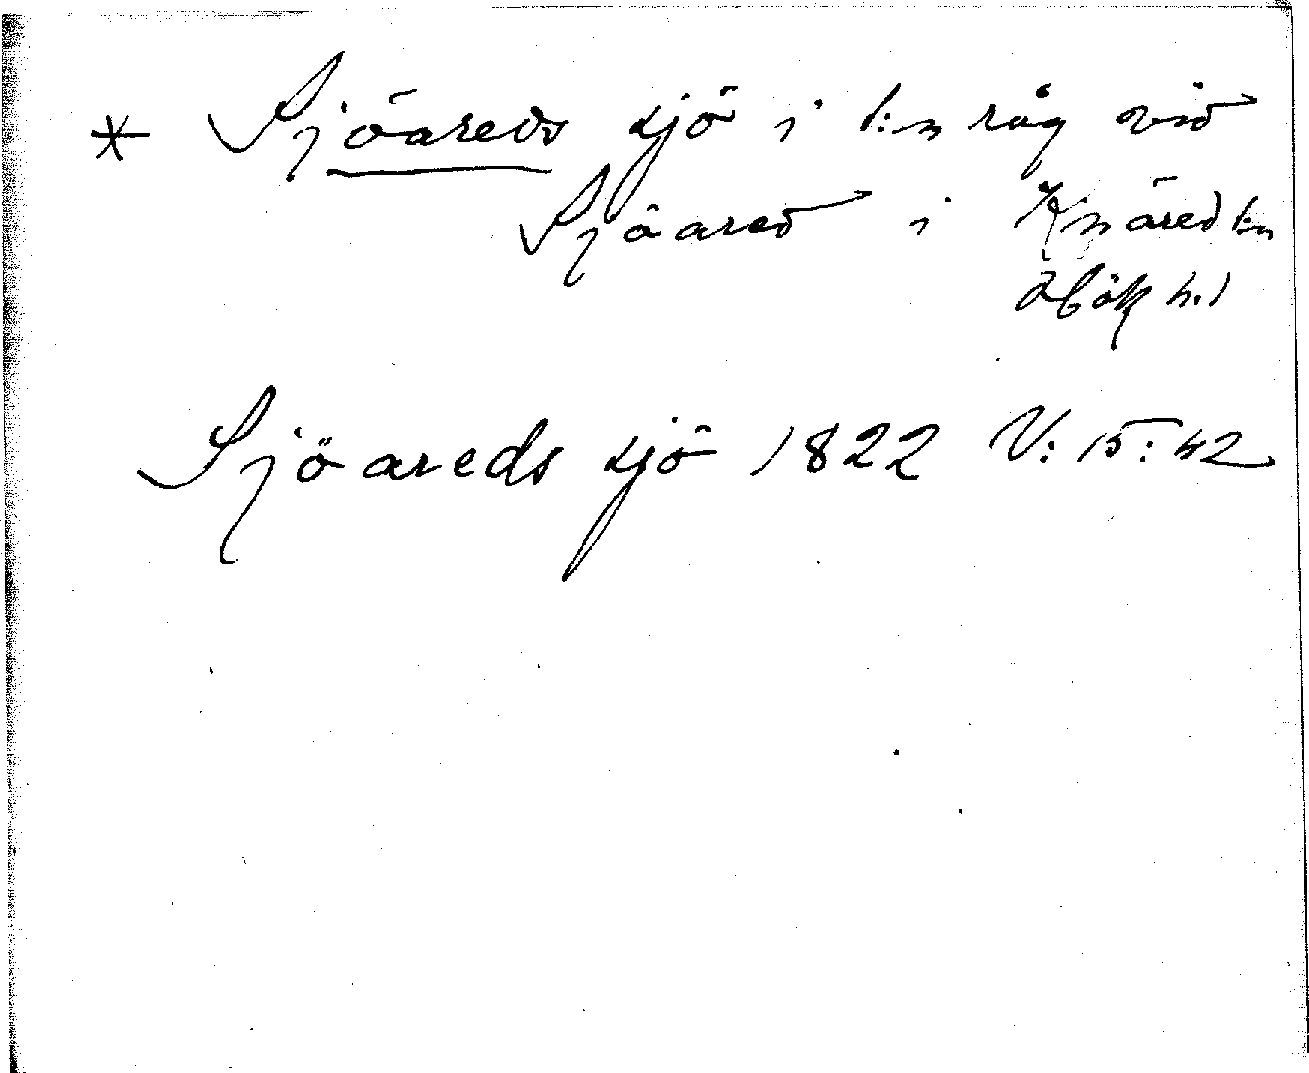 * Sjöareds sjö i l:n råg vid
Sjöared i Knäred l:n
Höök h.d
Sjöareds sjö 1822 V: 15: 42